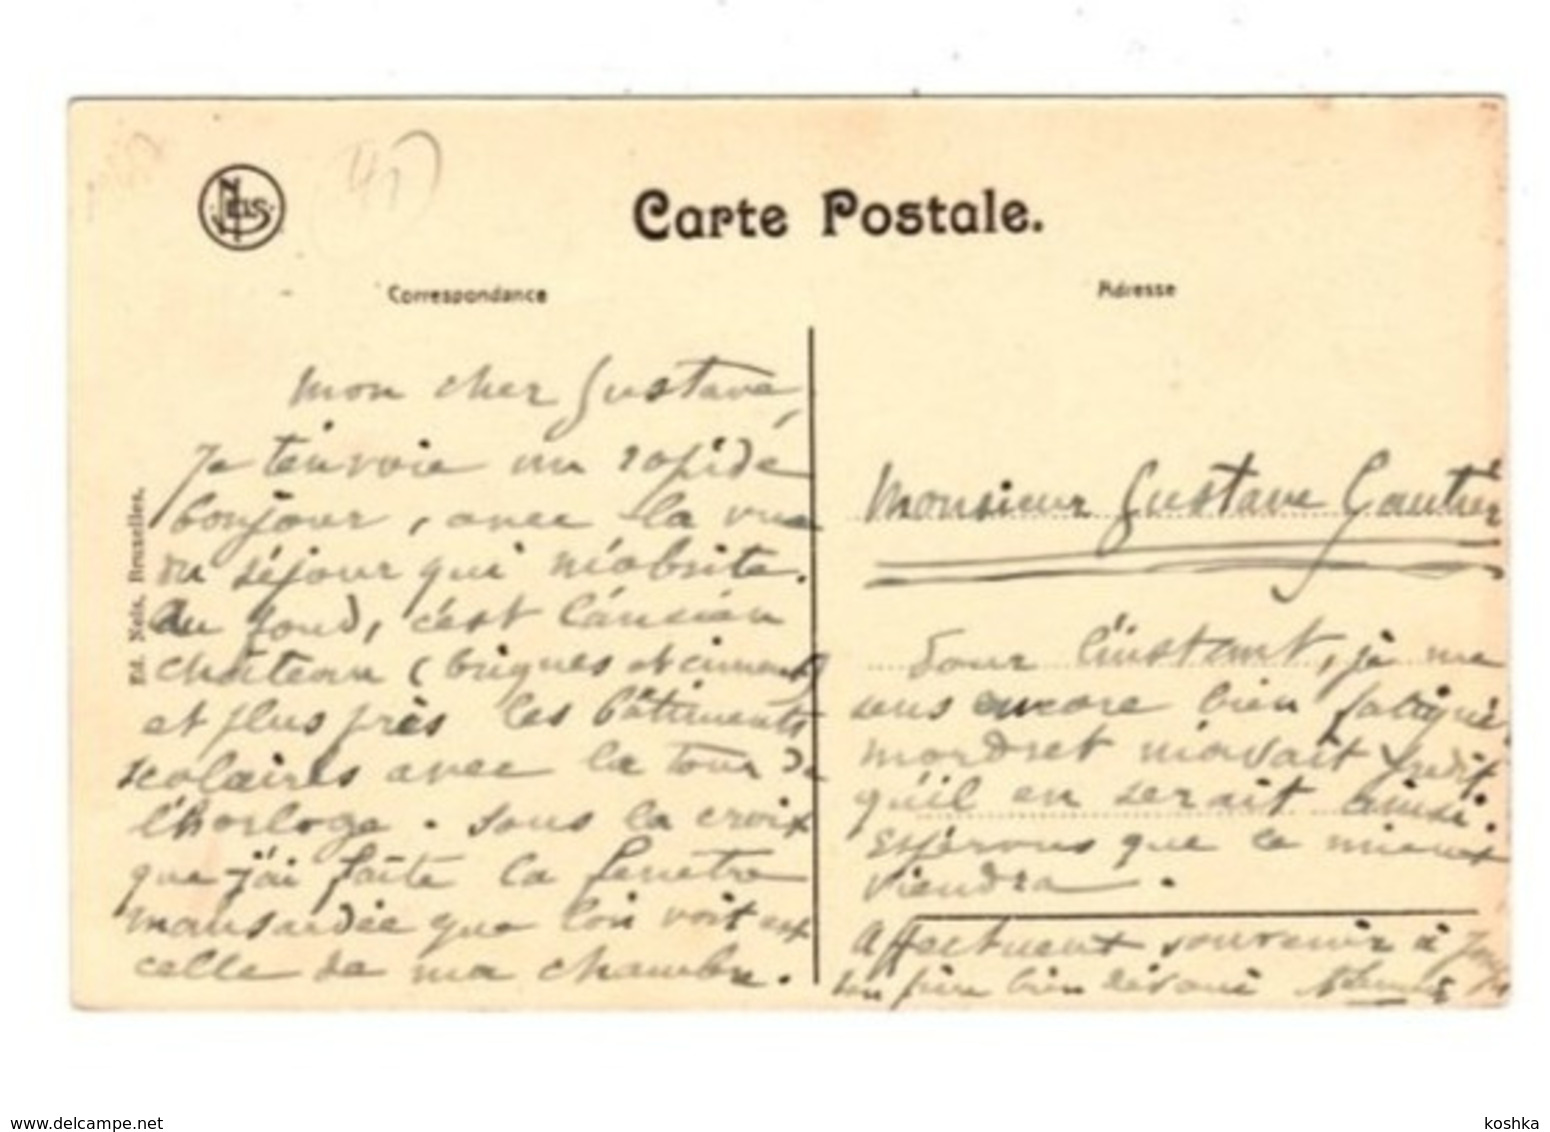 Nels
Carte Postale.
Correspondance
Adresse
Ed. Nels, Bruxelles.
Mon cher Gustave,
Je t'envoie un rapide
bonjour, avec la vue
du séjour qui m'abrite.
Au fond, c'est l'ancien
château (briques et ciment)
et plus près les bâtiments
scolaires avec la tour de
l'horloge. Sous la croix
que j'ai faite la fenetre
mansardée que l'on voit est
celle de ma chambre.
Monsieur Gustave Gautier
Pour l'instant, je me
sens encore bien fatigué,
Mordret m'avait prédit
qu'il en serait ainsi.
Espérons que le mieux
viendra.
Affectueux souvenir à
ton frère bien dévoué
www.delcampe.net
koshka